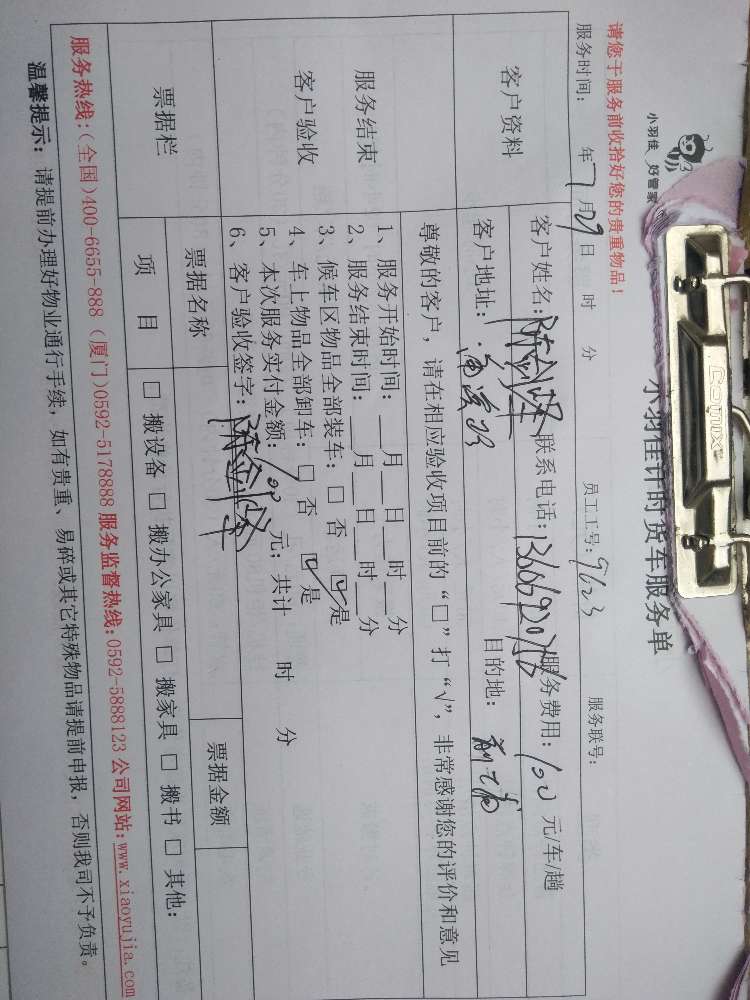 小羽佳 好管家
Comix
小羽佳计时货车服务单
请您于服务前收拾好您的贵重物品!
服务时间: 年7月29日 时 分 员工工号:9623 服务联号:
客户资料
客户姓名: 联系电话: 服务费用:100元/车/趟
客户地址: 目的地:
尊敬的客户,请在相应验收项目前的“□”打“√”,非常感谢您的评价和意见
服务结束
客户验收
1、服务开始时间:__月__日__时__分
2、服务结束时间:__月__日__时__分
3、候车区物品全部装车:□ 否 ☑是
4、车上物品全部卸车:□ 否 ☑是
5、本次服务实付金额:100元;共计 时 分
6、客户验收签字:
票据栏
票据名称 票据金额
项 目 □ 搬设备 □ 搬办公家具 □ 搬家具 □ 搬书 □ 其他:
服务热线:(全国)400-6655-888 (厦门)0592-5178888 服务监督热线:0592-5888123 公司网站:www.xiaoyujia.com
温馨提示:请提前办理好物业通行手续,如有贵重、易碎或其它特殊物品请提前申报,否则我司不予负责。